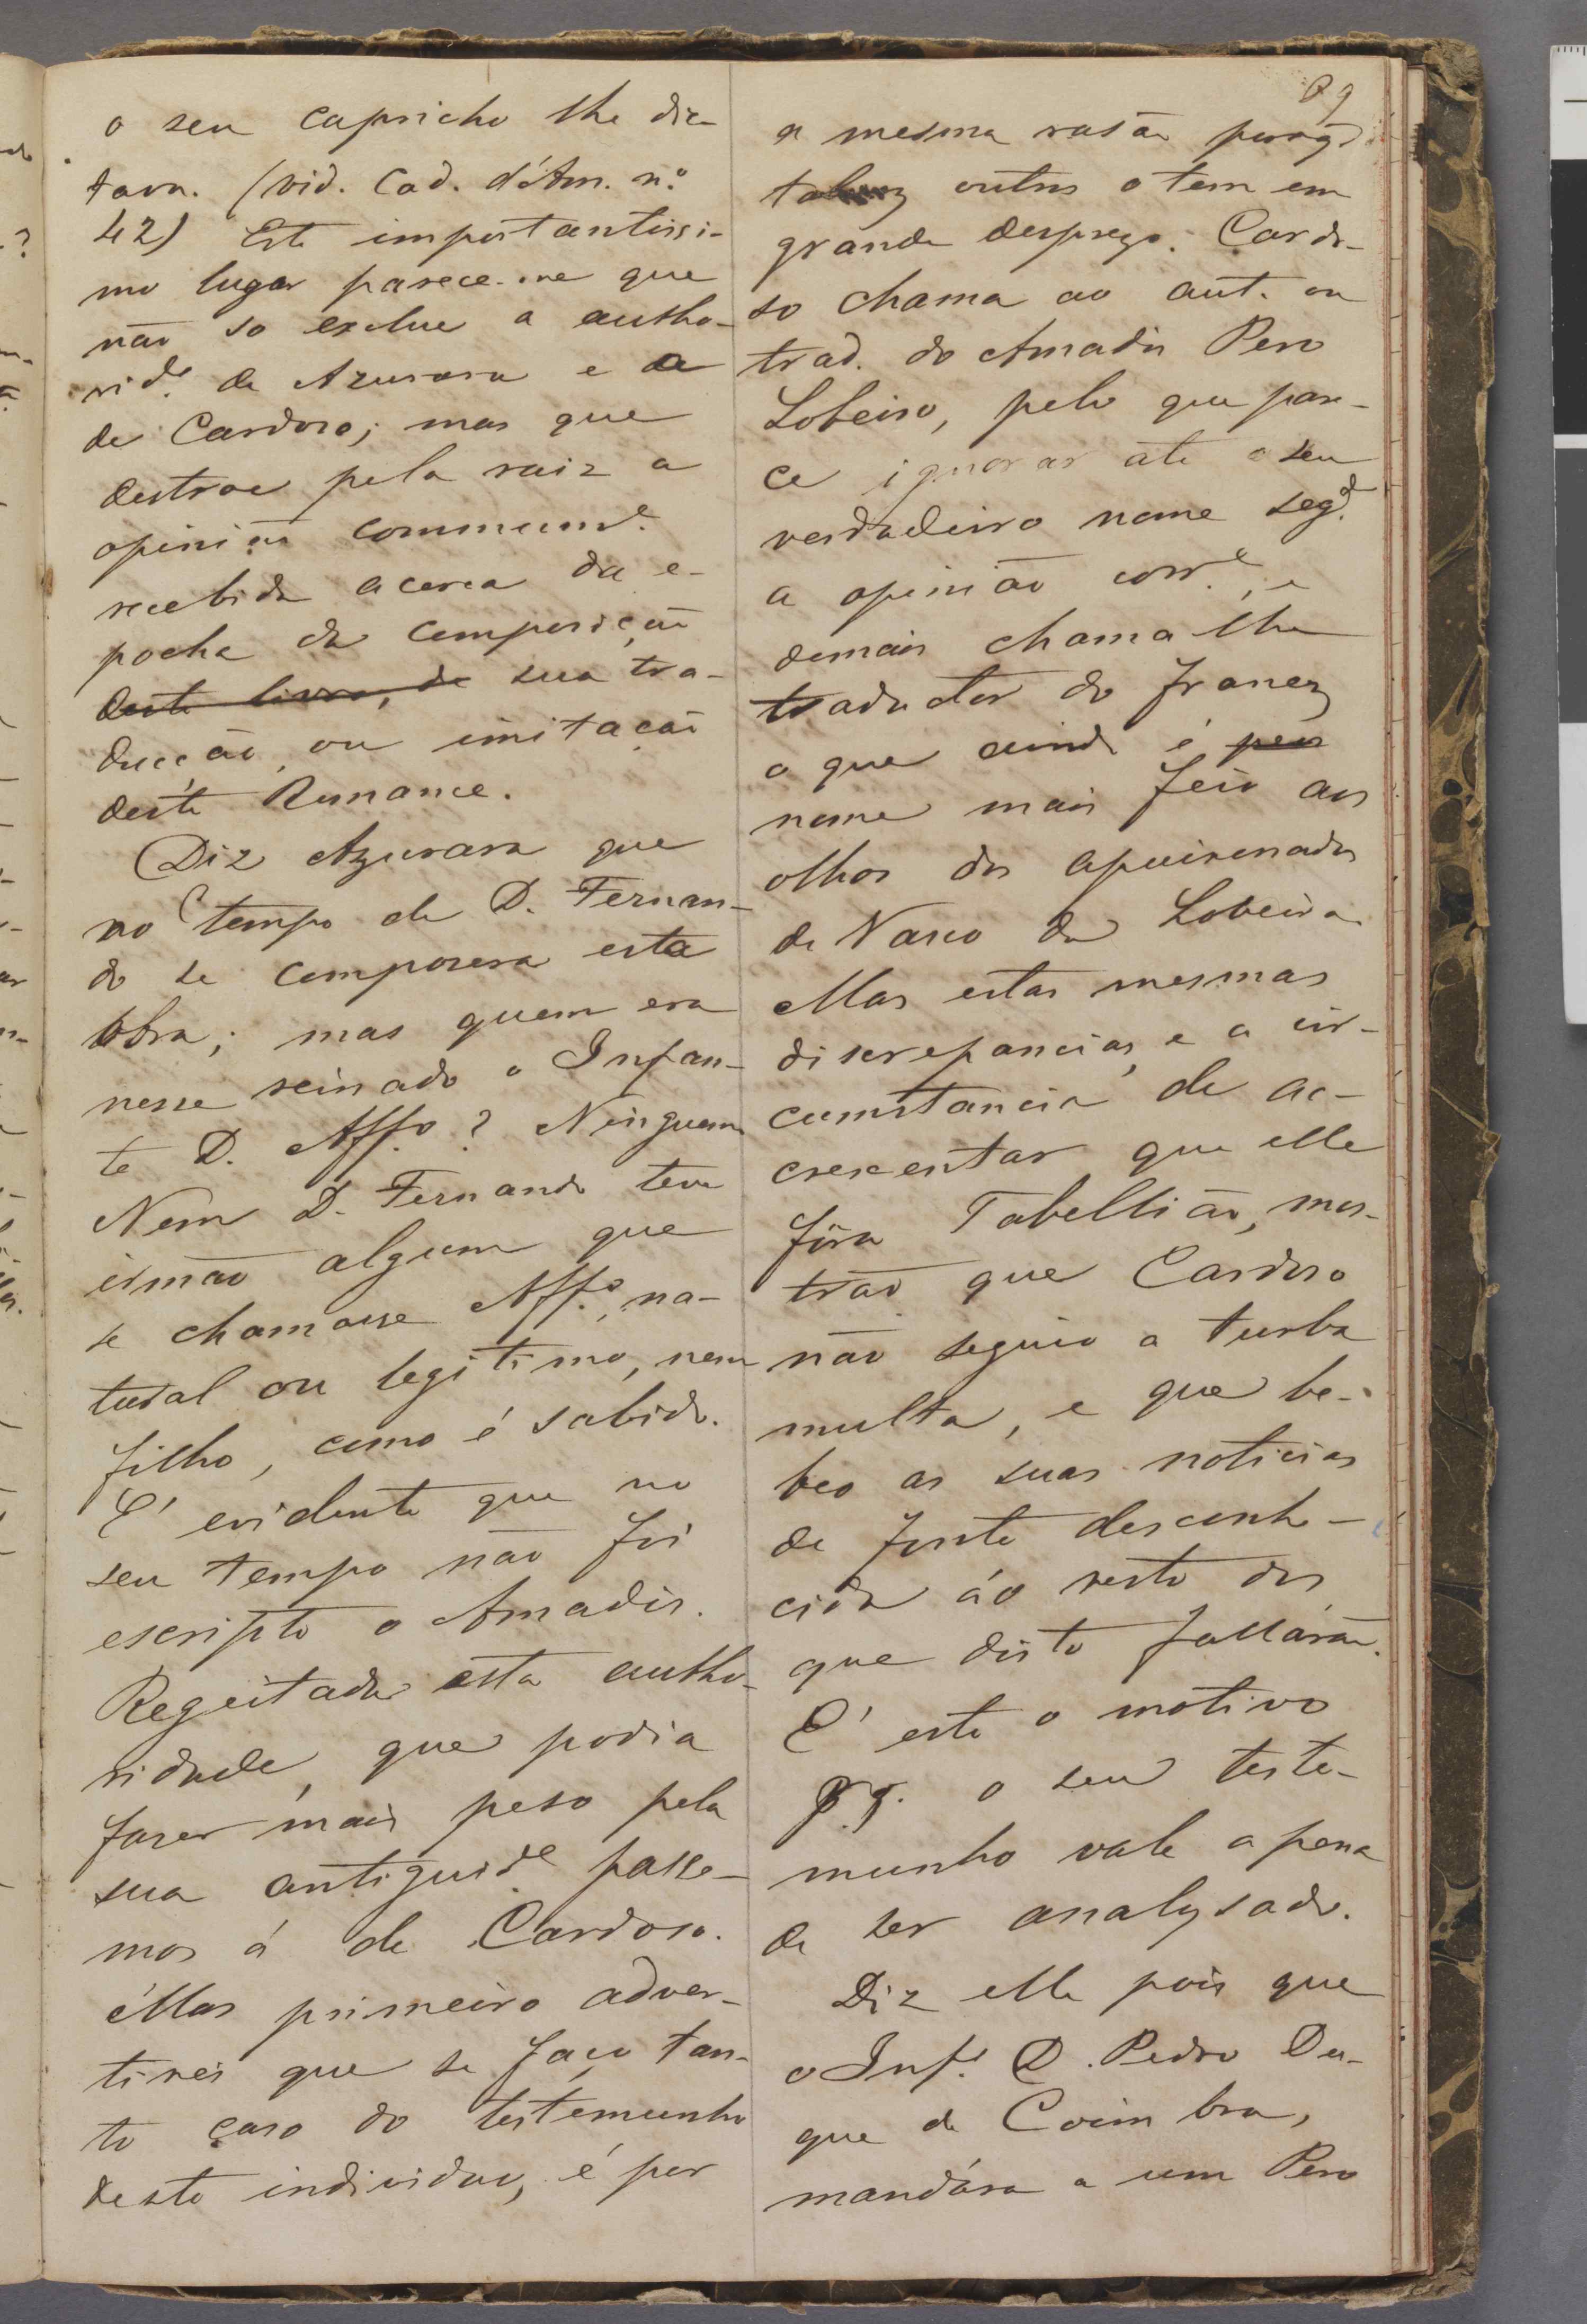 89
o seu capricho lhe dic
tava. (vid. Cad. d'Am. n.º
42) Este importantissi-
mo lugar parece-me que
não so exclue a autho-
rid.e de Azurara e a
de Cardoso; mas que
destroe pela raiz a
opinião commum.e
recebida acerca da e-
pocha da composição
deste livro, de sua tra-
ducção, ou imitação
deste Romance.
Diz Azurara que
no tempo de D. Fernan-
do se composera esta
obra; mas quem era
nesse reinado o Infan-
te D. Aff.o? Ninguem
Nem D. Fernando teve
irmão algum que
se chamasse Aff.o, na-
tural ou legitimo, nem
filho, como é sabido.
É evidente que no
seu tempo não foi
escripto o Amadis.
Regeitada esta autho-
ridade, que podia
fazer mais peso pela
sua antiguid.e passe-
mos á de Cardoso.
Mas primeiro adver-
tirei que se faço tan-
to caso do testemunho
deste individuo, é por
a mesma rasão porq
talvez outros o tem em
grande desprezo. Cardo-
so chama ao aut. ou
trad. do Amadis Pero
Lobeiro, pelo que pare-
ce ignorar até o seu
verdadeiro nome seg.do
a opinião corr.e, e
demais chama lhe
traductor do francez
o que ainda é peor
nome mais feio aos
olhos dos apaixonados
de Vasco de Lobeira
Mas estas mesmas
discrepancias, e a cir-
cumstancia de ac-
crescentar que elle
fôra Tabellião, mos-
trão que Cardoso
não seguio a turba
multa, e que be-
beo as suas noticias
de fonte desconhe-
cida áo resto dos
que disto fallárão.
É este o motivo
p.q. o seu teste-
munho vale a pena
de ser analysado.
Diz elle pois que
o Inf.e D. Pedro Du-
que de Coimbra,
mandára a um Pero